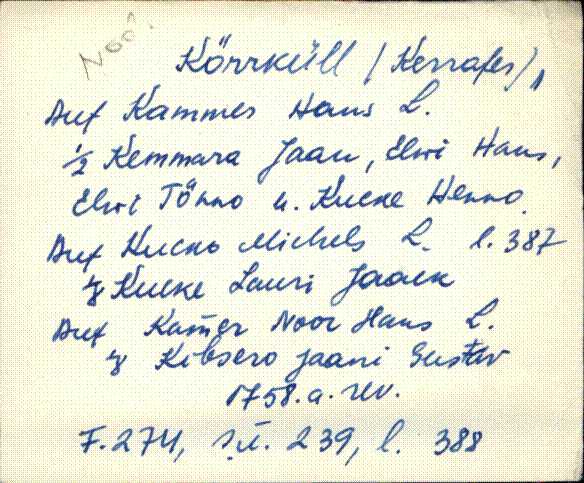 Noo.
Körrküll / Kerrafer /,
Auf Kammes Hans L.
1/2 Kemmara Jaan, Elwi Hans,
Elwi Tönno u. Kucke Henno.
Auf Kucko Michels L. l. 387
Kucke Lauri Jaack
Auf Kam̄er Noor Hans L.
Kibsero Jaani Gustav
1758. a. rev.
F. 274, s.ü. 239, l. 388